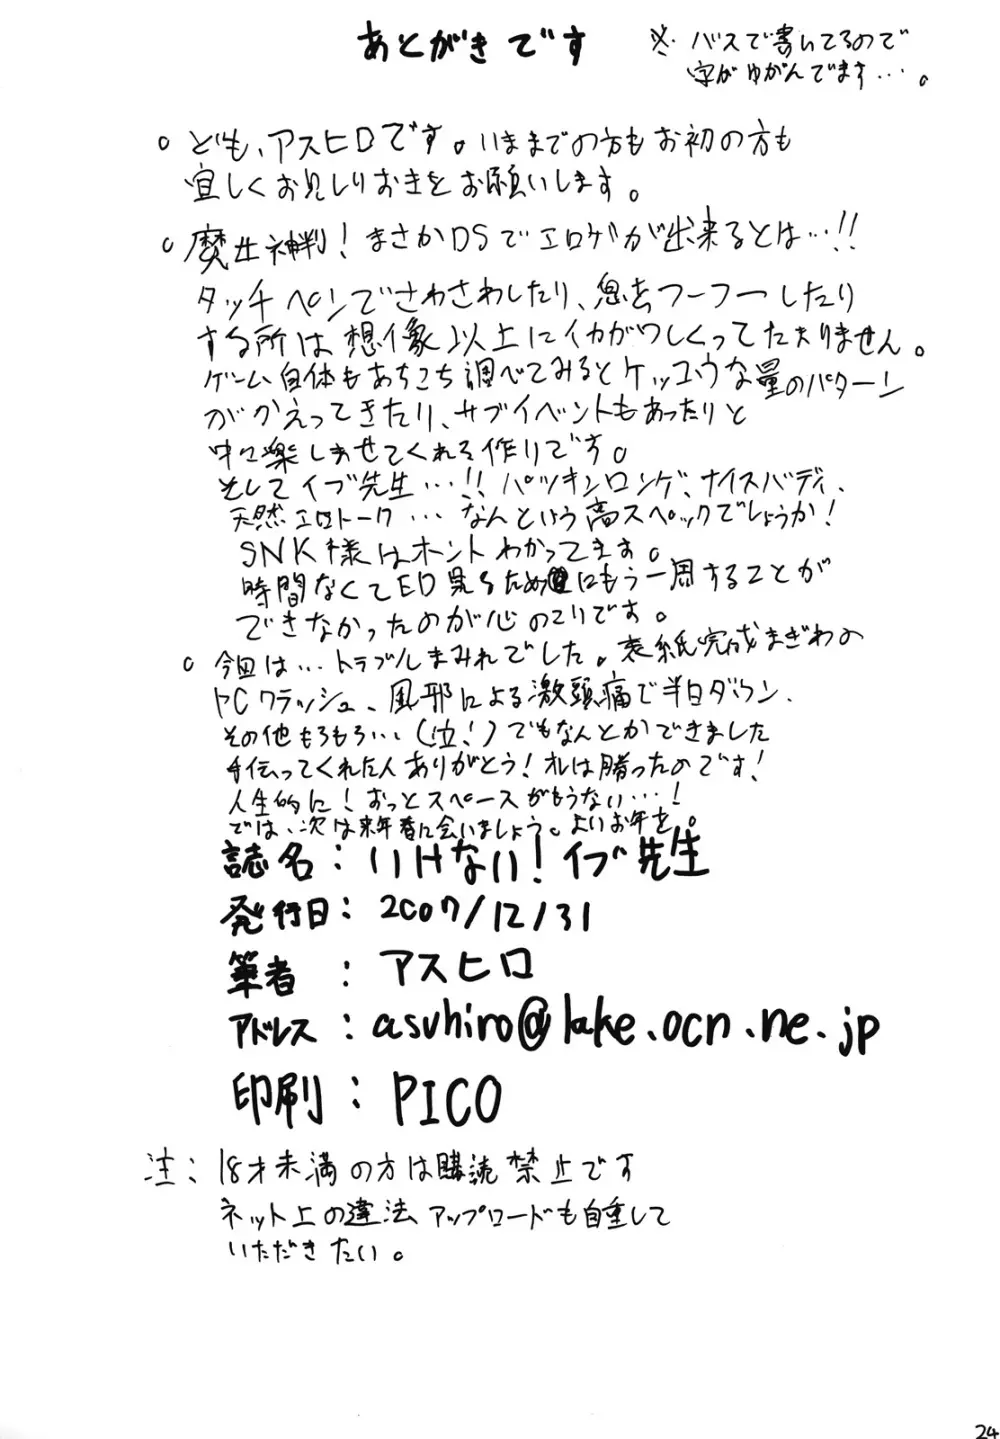 あとがきです
※バスで書いてるので
字がゆがんでます…。
。ども、アスヒロです。いままでの方もお初の方も
宜しくお見しりおきをお願いします。
。魔女神判!まさかDSでエロゲが出来るとは…!!
タッチペンでさわさわしたり、息をフーフーしたり
する所は想像以上にイカがわしくってたまりません。
ゲーム自体もあちこち調べてみるとケッコウな量のパターン
がかえってきたり、サブイベントもあったりと
中々楽しませてくれる作りです。
そしてイブ先生…!!パツキンロンゲ、ナイスバディ、
天然エロトーク…なんという高スペックでしょうか!
SNK様はホントわかってます。
時間なくてED見るためにもう一周することが
できなかったのが心のこりです。
。今回は…トラブルまみれでした。表紙完成まぎわの
PCクラッシュ、風邪による激頭痛で半日ダウン、
その他もろもろ…(泣!)でもなんとかできました
手伝ってくれた人ありがとう!オレは勝ったのです!
人生的に!おっとスペースがもうない…!
では、次は来年春に会いましょう。よいお年を。
誌名:いけない!イブ先生
発行日:2007/12/31
筆者:アスヒロ
アドレス:asuhiro@lake.ocn.ne.jp
印刷:PICO
注:18才未満の方は購読禁止です
ネット上の違法アップロードも自重して
いただきたい。
24